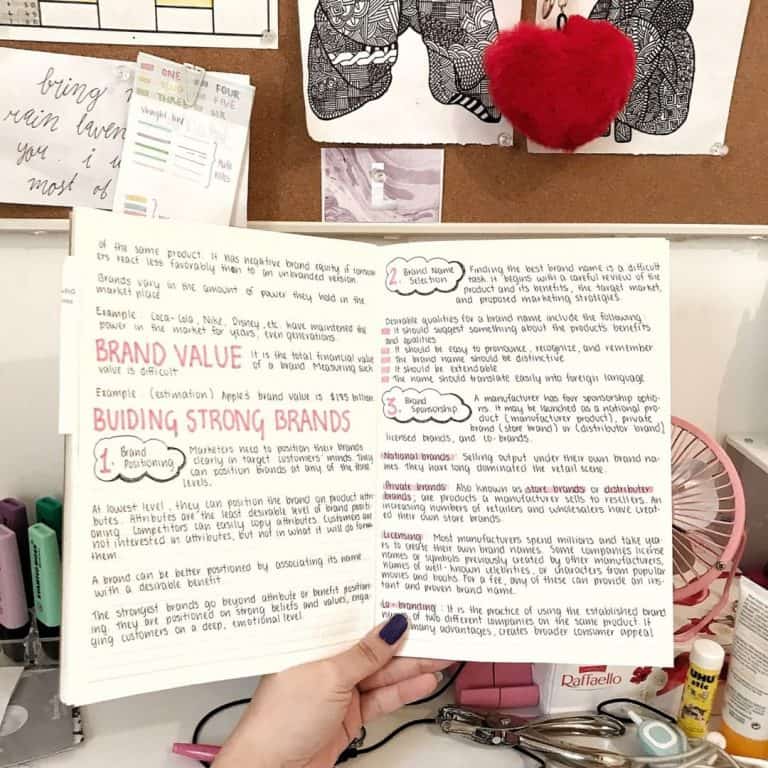 bring
rain laven
you. i w
most of
ONE
TWO
THREE
FOUR
FIVE
SIX
of the same product. It has negative brand equity if consum
ers react less favorably than to an unbranded version.
Brands vary in the amount of power they hold in the
market place
Example : Coca-Cola, Nike, Disney, etc. have maintained the
power in the market for years, even generations.
BRAND VALUE It is the total financial value
of a brand. Measuring such
value is difficult
Example: (estimation) Apple's brand value is
BUIDING STRONG BRANDS
1. Brand
Positioning
Marketers need to position their brands
clearly in target customers' minds. They
can position brands at any of the three
levels.
At lowest level, they can position the brand on product attri
butes. Attributes are the least desirable level of brand positi
oning. Competitors can easily copy attributes. Customers are
not interested in attributes, but not in what it will do for
them.
A brand can be better positioned by associating its name
with a desirable benefit.
The strongest brands go beyond attribute or benefit position-
ing. they are positioned on strong beliefs and values, enga-
ging customers on a deep, emotional level.
2. Brand Name
Selection
Finding the best brand name is a difficult
task. it begins with a careful review of the
product and its benefits, the target market,
and proposed marketing strategies.
Desirable qualities for a brand name include the following
It should suggest something about the products benefits
and qualities
It should be easy to pronounce, recognize, and remember
The brand name should be distinctive
It should be extendable
The name should translate easily into foreign language
3. Brand
Sponsorship
A manufacturer has four sponsorship optio-
ns. it may be launched as a national pro-
duct (manufacturer product), private
brand (store brand) or (distributor brand)
licensed brands, and co-brands.
National brands: Selling output under their own brand na-
mes. they have long dominated the retail scene.
Private brands: Also known as store brands or distributer
brands; are products a manufacturer sells to resellers. An
increasing numbers of retailers and wholesalers have creat-
ed their own store brands.
Licensing: Most manufacturers spend millions and take yea-
rs to create their own brand names. Some companies license
names or symbols previously created by other manufacturers,
names of well-known celebrities, or characters from popular
movies and books. For a fee, any of these can provide an ins-
tant and proven brand name.
Co-branding: It is the practice of using the established brand
names of two different companies on the same product. If
many advantages, creates broader consumer appeal
Raffaello
UHU
stic